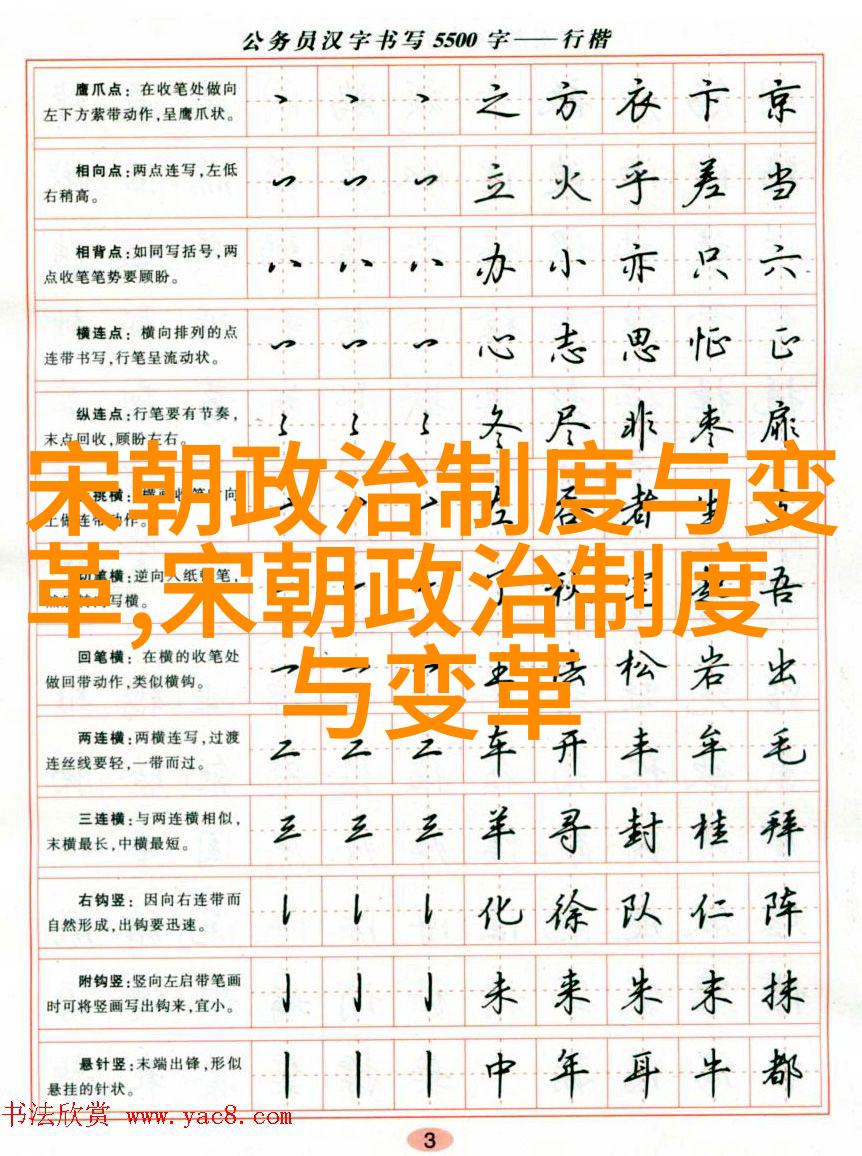 公务员汉字书写 5500 字——行楷
鹰爪点：在收笔处做向
左下方萦带动作,呈鹰爪状。
之 方 衣 卞 京
相向点:两点连写,左低
右稍高。
立 火 乎 差 当
相背点:如同写括号,两
点收笔笔势要顾盼。
办 小 亦 只 六
横连点：横向排列的点
连带书写,行笔呈流动状。
心 志 思 怔 正
纵连点:行笔要有节奏,
末点回收,顾盼左右。
冬 尽 非 枣 扉
挑横：
宋朝政治制度与变
革,宋朝政治制度
与变革
者
切笔横：逆向入纸
写横。
吾
回笔横：在横的收笔处
做回带动作,类似横钩。
王 法 松 岩 出
两连横：两横连写,过渡
连丝线要轻,一带而过。
车 开 丰 牟 毛
三连横:与两连横相似,
末横最长,中横最短。
羊 寻 封 桂 拜
右钩竖：因向右连带而
自然形成,出钩要迅速。
化 徐 队 仁 阵
附钩竖:竖向左启带笔画
时可将竖画写出钩来,宜小。
未 来 朱 末 抹
悬针竖:末端出锋,形似
悬挂的针状。
中 年 耳 牛 都
书法欣赏 www.yac8.com
3